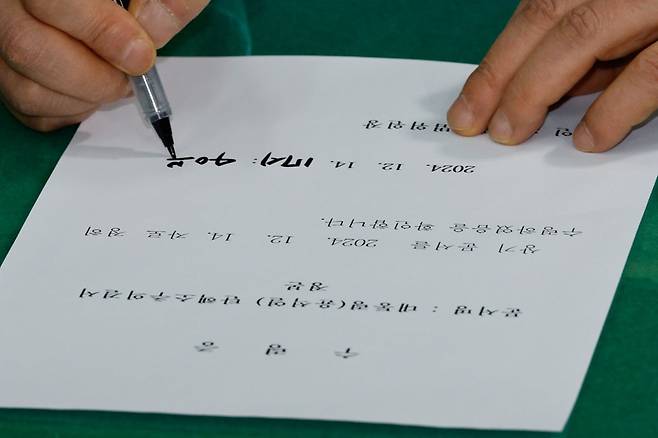 수 령 증
문서명 : 대통령(윤석열) 탄핵소추의결서
정본
상기 문서를 2024. 12. 14 자로 정히
수령하였음을 확인합니다.
2024. 12. 14. 17시: 40분
인 : 법위원장